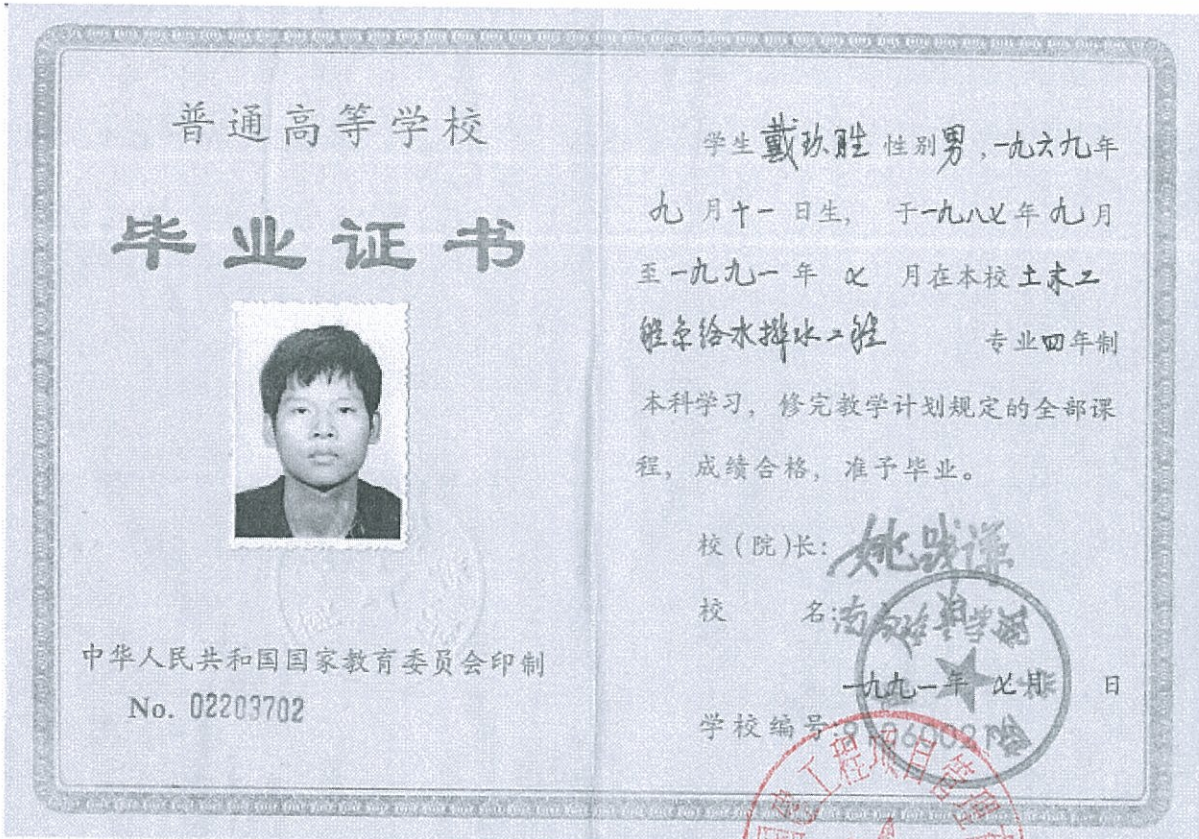 普通高等学校
毕业证书
中华人民共和国国家教育委员会印制
No. 02203702
学生戴玖胜性别男,一九六九年
九月十一日生, 于一九八七年九月
至一九九一年七月在本校土木工
程系给水排水工程 专业四年制
本科学习, 修完教学计划规定的全部课
程, 成绩合格, 准予毕业。
校(院)长:姚践谦
校 名:
一九九一年七月 日
学校编号:
工程项目管理